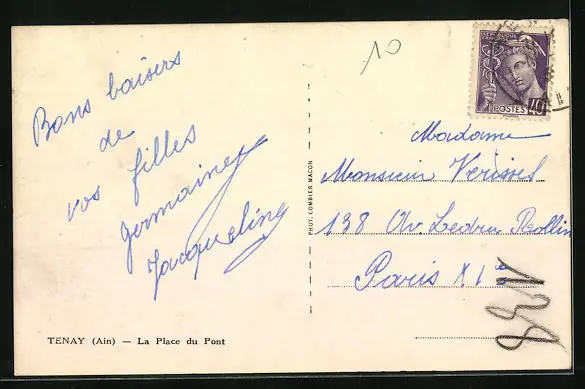 10
Bons baisers
de
vos filles
Germaine
Jacqueline
TENAY (Ain) — La Place du Pont
PHOT. COMBIER MACON
REPUBLIQUE FRANÇAISE
POSTES 40
Madame
Monsieur Verissel
138 Av. Ledru Rollin
Paris XIe